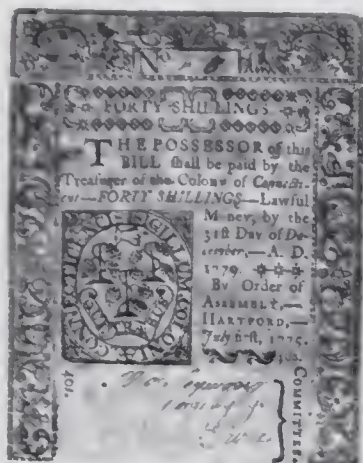 No
FORTY SHILLINGS
THE POSSESSOR of this
BILL shall be paid by the
Treasurer of the Colony of Connecti-
cut—FORTY SHILLINGS—Lawful
Money, by the
31st Day of De-
cember,—A. D.
1779.
By Order of
ASSEMBLY,—
HARTFORD,—
July first, 1775.
SIGILLUM COLONIÆ CONNECTICUTENSIS
40s.
40s.
COMMITTEE.